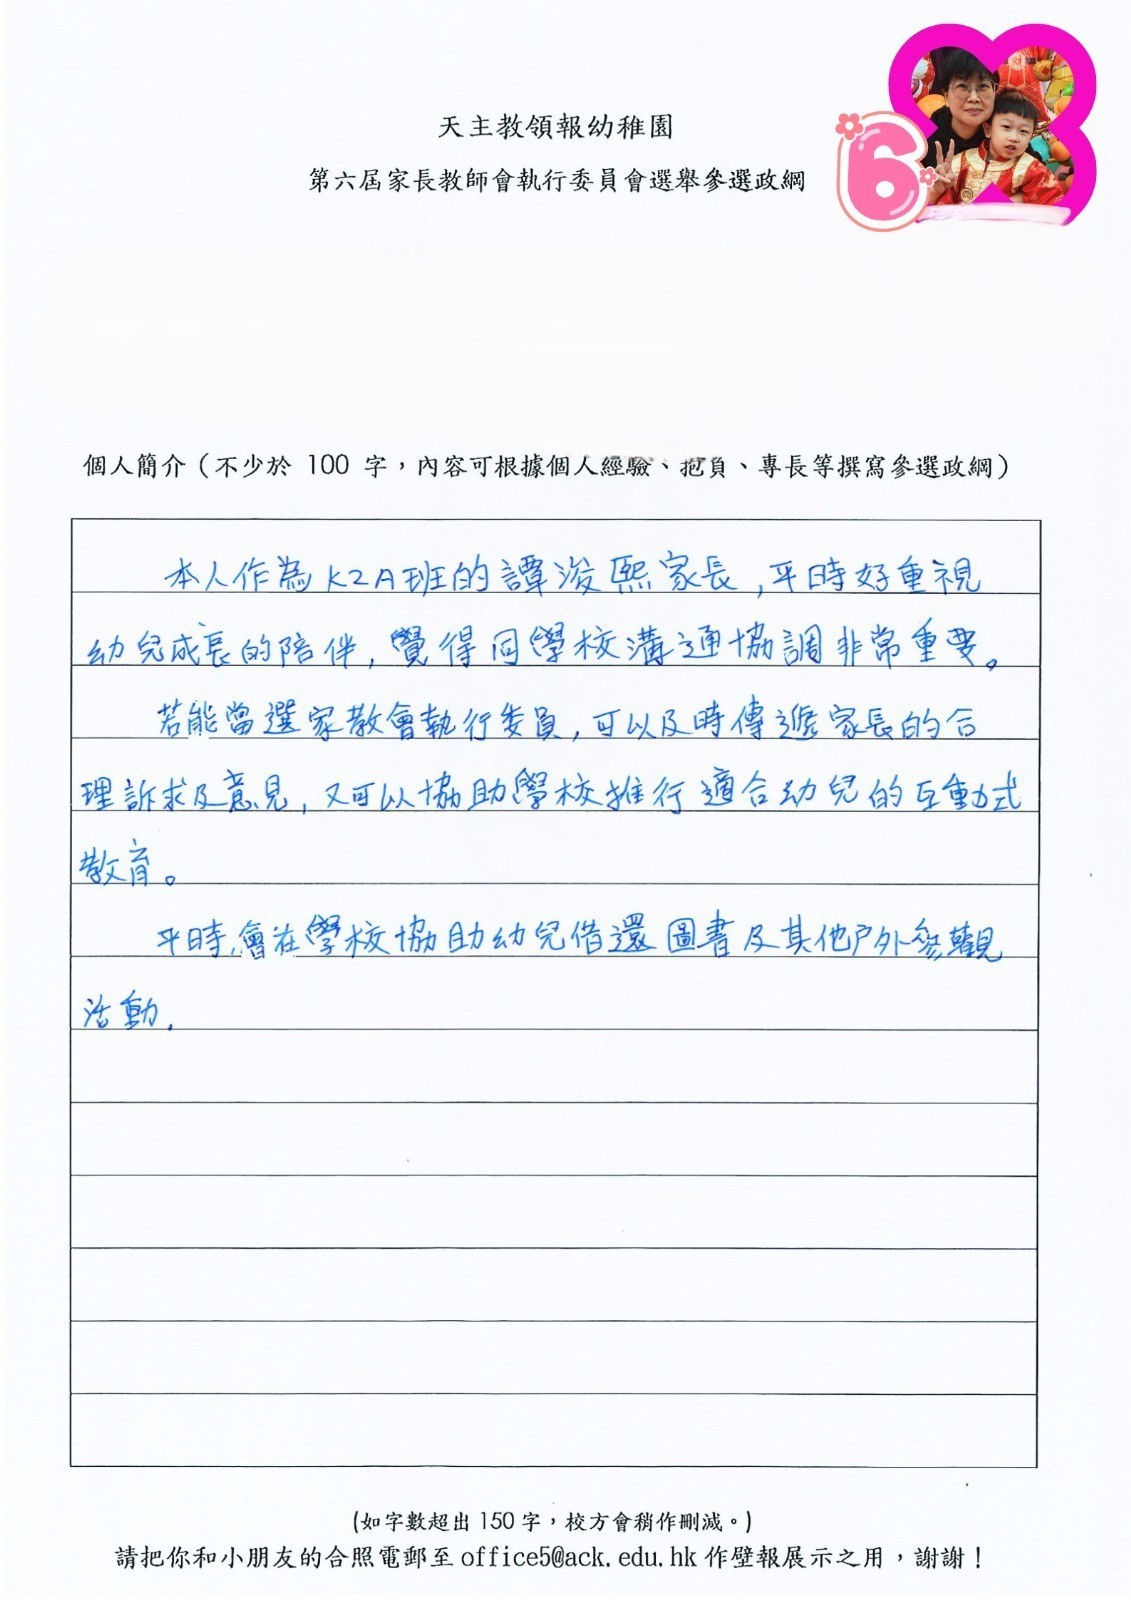 天主教領報幼稚園
第六屆家長教師會執行委員會選舉參選政綱
6
個人簡介（不少於 100 字，內容可根據個人經驗、抱負、專長等撰寫參選政綱）
本人作為K2A班的譚浚熙家長,平時好重視
幼兒成長的陪伴,覺得同學校溝通協調非常重要。
若能當選家教會執行委員,可以及時傳遞家長的合
理訴求及意見,又可以協助學校推行適合幼兒的互動式
教育。
平時,會在學校協助幼兒借還圖書及其他戶外參觀
活動.
(如字數超出 150 字，校方會稍作刪減。)
請把你和小朋友的合照電郵至 office5@ack.edu.hk 作壁報展示之用，謝謝！